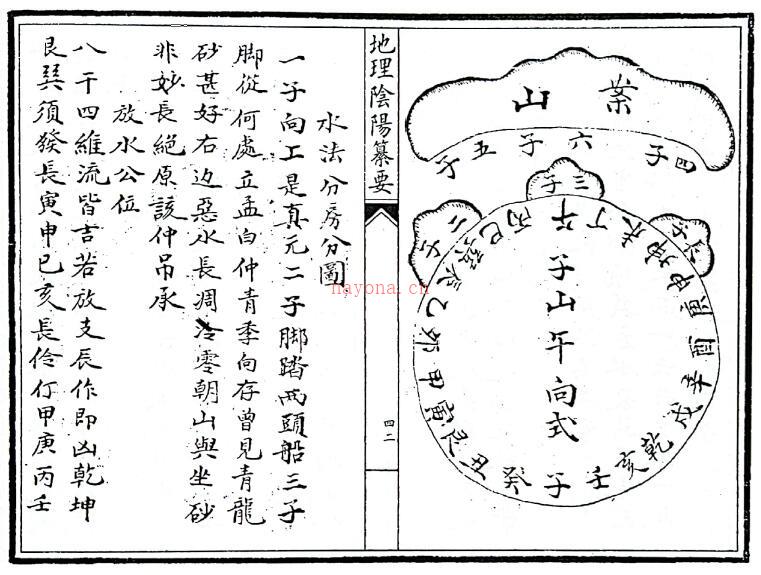 案山
四子
六子
五子
三子
二子
午丁未坤申庚酉辛戌乾亥壬子癸丑艮寅甲卯乙辰巽巳丙
子山午向式
地理陰陽纂要
四二
水法分房分圖
一子向工是真元二子脚踏兩頭船三子
脚從何處立孟白仲青季向存曾見青龍
砂甚好右边惡水長凋冷零朝山與坐砂
非妙長絕原該仲吊承
放水公位
八干四維流皆吉若放支辰作即凶乾坤
艮巽須發長寅申巳亥長伶仃甲庚丙壬
nayona.cn